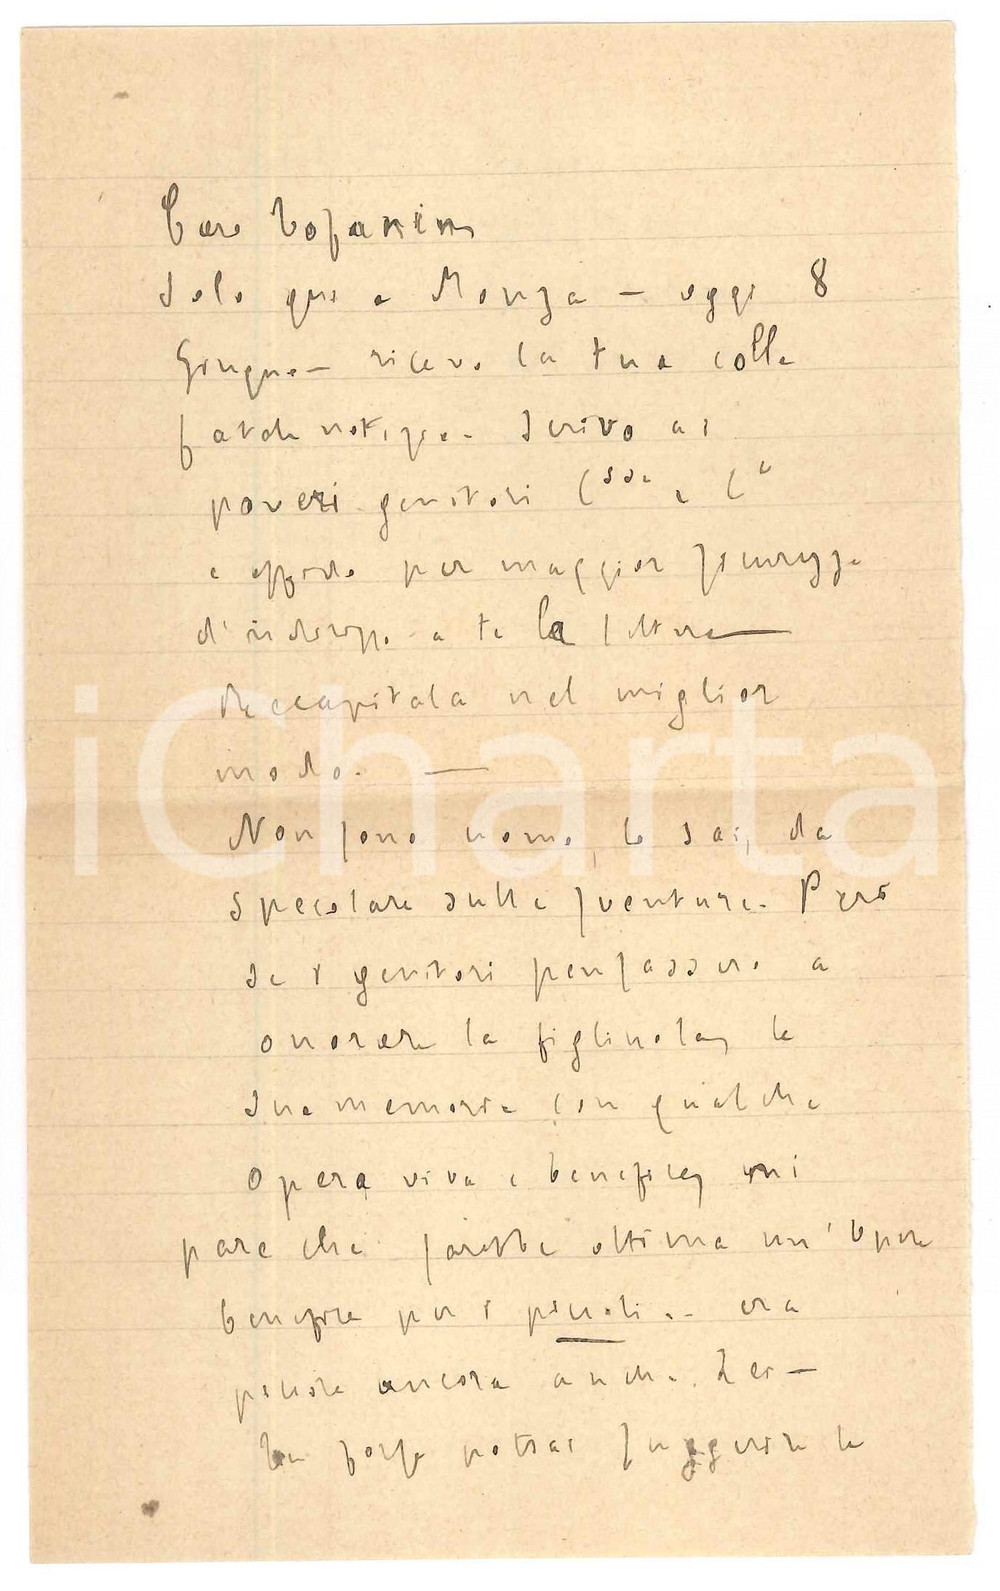 Caro Tofanin
Solo qui a Monza – oggi 8
Giugno – ricevo la tua colla
fatale notizia. Scrivo ai
poveri genitori C^ssa e C^te
e affido per maggior sicurezza
d'indirizzo a te la lettera
Recapitala nel miglior
modo. —
Non sono uomo, lo sai, da
specolare sulle sventure. Però
se i genitori pensassero a
onorare la figliuola, la
sua memoria con qualche
opera viva e benefica, mi
pare che sarebbe ottima un'opera
benefica per i piccoli .. era
piccola ancora anche Lei –
Tu forse potrai suggerire la
iCharta